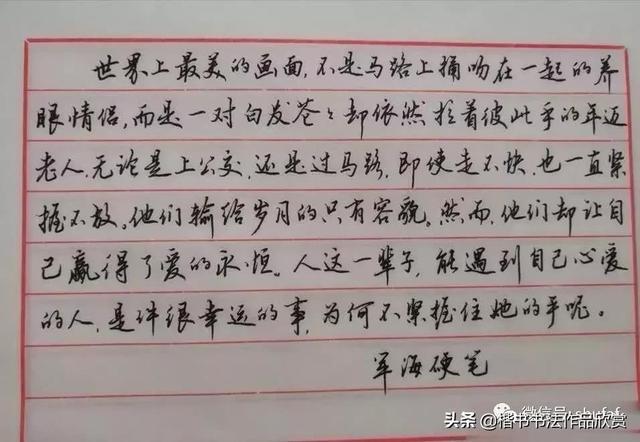 世界上最美的画面,不是马路上捅吻在一起的养
眼情侣,而是一对白发苍々却依然拉着彼此手的年迈
老人,无论是上公交,还是过马路,即使走不快,也一直紧
握不放。他们输给岁月的只有容貌。然而,他们却让自
己赢得了爱的永恒。人这一辈子,能遇到自己心爱
的人,是件很幸运的事,为何不紧握住她的手呢。
军海硬笔
微信号:
头条 @楷书书法作品欣赏